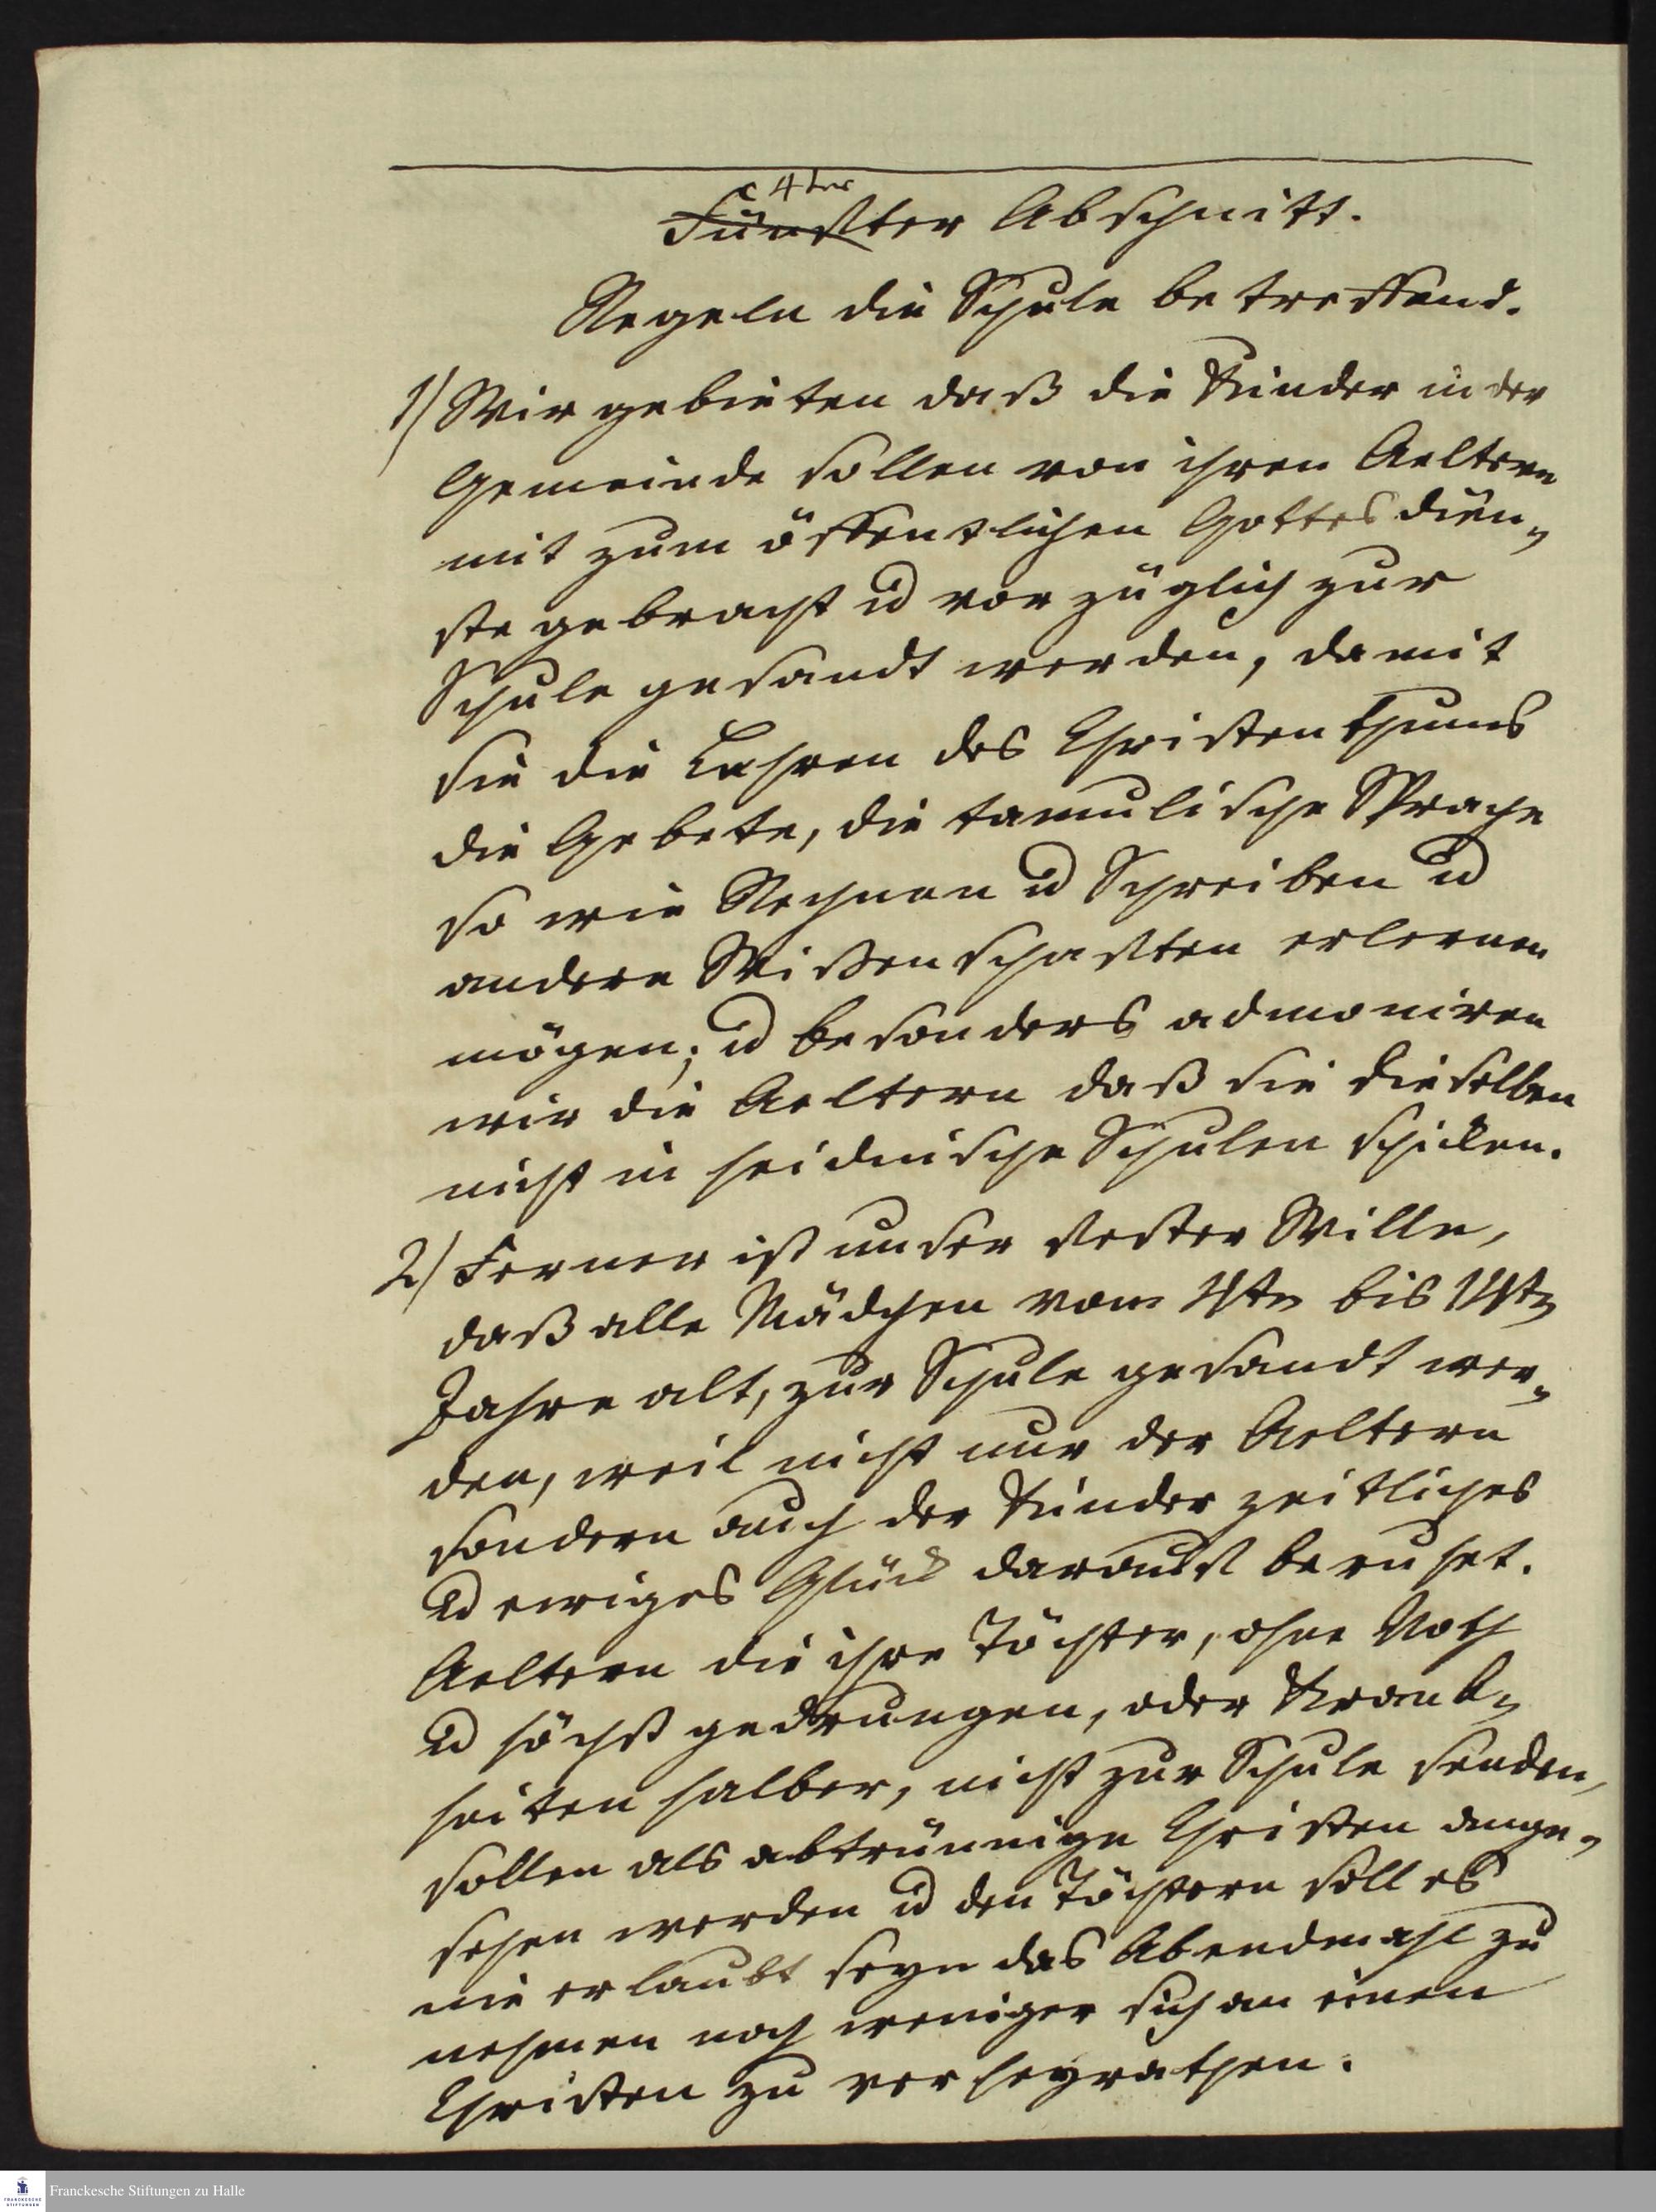 4ter
Fünfter Abschnitt.
Regeln die Schule betreffend.
1) Wir gebieten daß die Kinder in der
Gemeinde sollen von ihren Aeltern
mit zum öffentlichen Gottesdien„
ste gebracht ud vorzüglich zur
Schule gesandt werden, damit
sie die Lehren des Christenthums
die Gebete, die tamulische Sprache
so wie Rechnen ud Schreiben ud
andere Wißenschaften erlernen
mögen; ud besonders admoniren
wir die Aeltern daß sie dieselben
nicht in heidnische Schulen schicken.
2) Ferner ist unser fester Wille,
daß alle Mädchen vom bis
Jahre alt, zur Schule gesandt wer„
den, weil nicht nur der Aeltern
sondern auch der Kinder zeitliches
ud ewiges Glück darauf beruhet.
Aeltern die ihre Töchter, ohne Noth
ud höchst gedrungen, oder Krank„
heiten halber, nicht zur Schule senden,
sollen als abtrünnige Christen ange„
sehen werden ud den Töchtern soll es
nie erlaubt seyn das Abendmahl zu
nehmen noch weniger sich an einen
Christen zu verheyrathen.
FRANCKESCHE STIFTUNGEN
Franckesche Stiftungen zu Halle